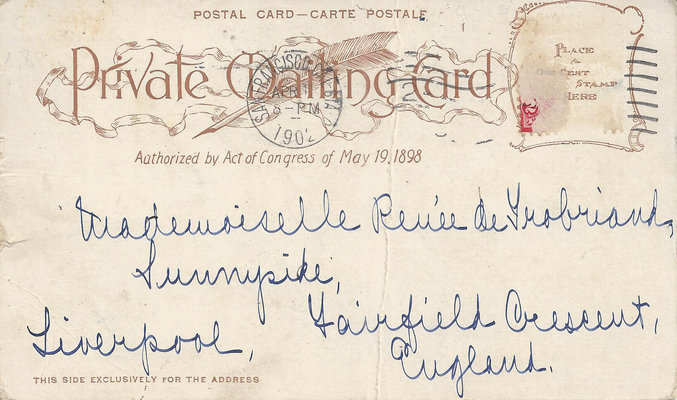 POSTAL CARD—CARTE POSTALE
Private Mailing Card
SAN FRANCISCO, CAL.
APR
8-PM
1902
PLACE
A
ONE CENT
STAMP
HERE
Authorized by Act of Congress of May 19, 1898
Mademoiselle Renée de Trobriand,
Sunnyside,
Liverpool, Fairfield Crescent,
England.
THIS SIDE EXCLUSIVELY FOR THE ADDRESS